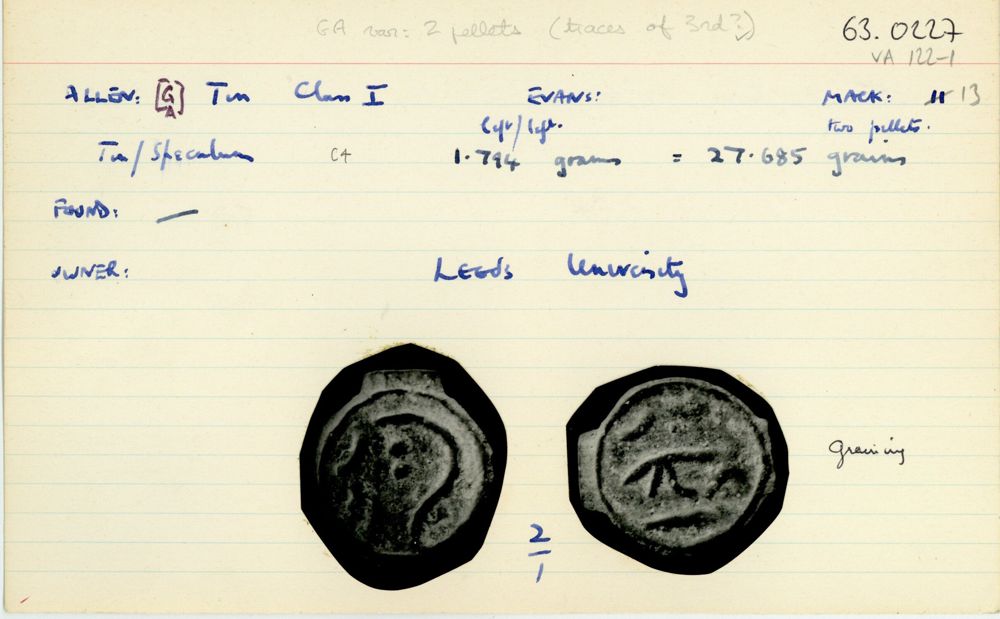 GA var: 2 pellets (traces of 3rd?)
63.0227
VA 122-1
ALLEN: [G] Tin Class I EVANS: MACK: 13
A
left/left. two pellets.
Tin/Speculum C4 1.794 grams = 27.685 grains
FOUND: —
OWNER: LEEDS University
graining
2
1